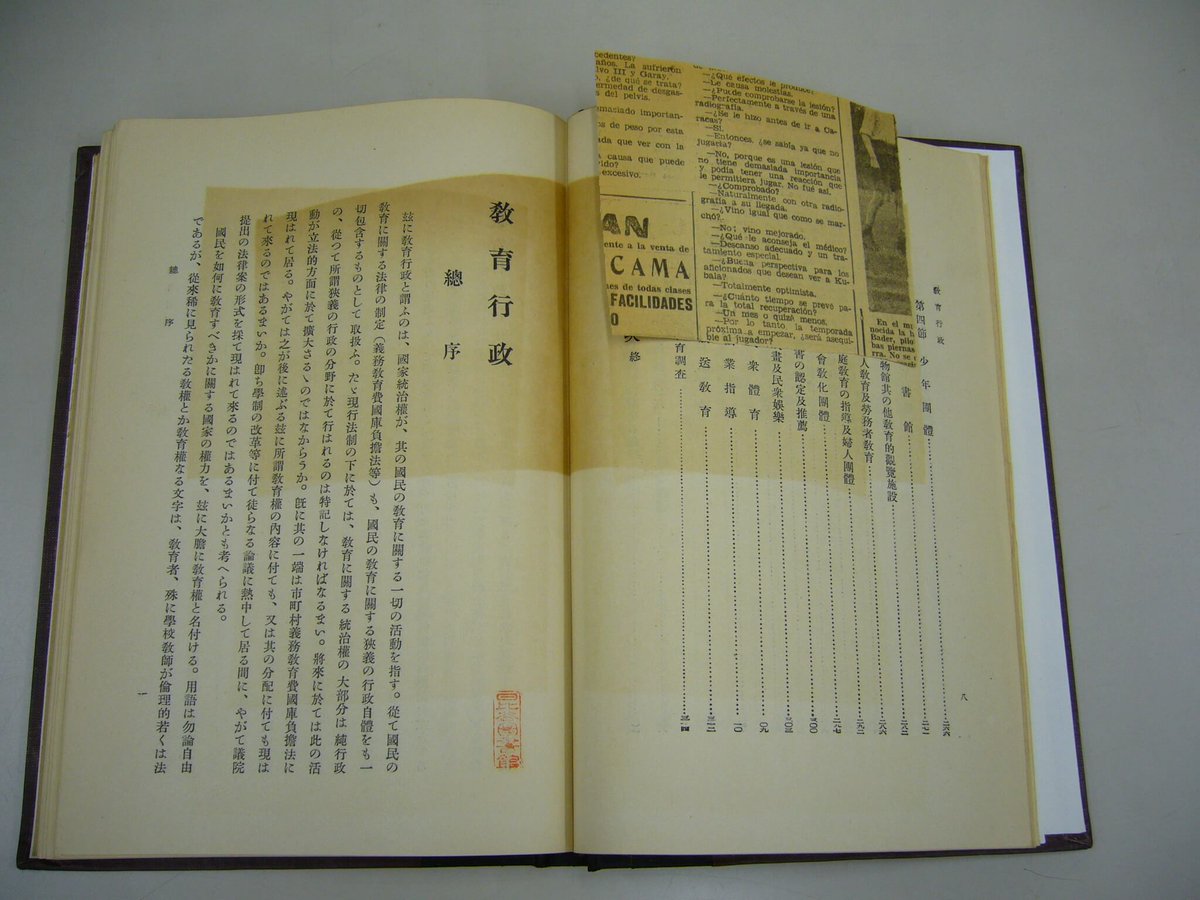 cedentes?
años. La sufrieron
lvo III y Garay.
o, ¿de qué se trata?
ermedad de desgas-
s del pelvis.
masiado importan-
os de peso por esta
ada que ver con la
causa que puede
rido?
excesivo.
AN
ente a la venta de
CAMA
nes de todas clases
FACILIDADES
—¿Qué efectos le produce?
—Le causa molestias.
—¿Puede comprobarse la lesión?
—Perfectamente a través de una
radiografía.
—¿Se le hizo antes de ir a Ca-
racas?
—Sí.
—Entonces, ¿se sabía ya que no
jugaría?
—No, porque es una lesión que
no tiene demasiada importancia
y podía tener una reacción que
le permitiera jugar. No fué así.
—¿Comprobado?
—Naturalmente con otra radio-
grafía a su llegada.
—¿Vino igual que como se mar-
chó?
—No; vino mejorado.
—¿Qué le aconseja el médico?
—Descanso adecuado y un tra-
tamiento especial.
—¿Buena perspectiva para los
aficionados que desean ver a Ku-
bala?
—Totalmente optimista.
—¿Cuánto tiempo se prevé pa-
ra la total recuperación?
—Un mes o quizé menos.
—Por lo tanto, la temporada
próxima a empezar, ¿será asequi-
ble al jugador?
En el mi
nocida la h
Bader, pilo
bas piernas
rra. No se
敎育行政
八
第四節 少年團體
書館
物館其の他敎育的觀覽施設
人敎育及勞務者敎育
庭敎育の指導及婦人團體
會敎化團體
書の認定及推薦
畫及民衆娯樂
衆體育
業指導
送敎育
育調査
敎育行政
總序
玆に敎育行政と謂ふのは、國家統治權が、其の國民の敎育に關する一切の活動を指す。從て國民の
敎育に關する法律の制定（義務敎育費國庫負擔法等）も、國民の敎育に關する狹義の行政自體をも一
切包含するものとして取扱ふ。たゞ現行法制の下に於ては、敎育に關する統治權の大部分は純行政
の、從つて所謂狹義の行政の分野に於て行はれるのは特記しなければなるまい。將來に於ては此の活
動が立法的方面に於て擴大さるゝのではなからうか。旣に其の一端は市町村義務敎育費國庫負擔法に
現はれて居る。やがては之が後に述ぶる玆に所謂敎育權の內容に付ても、又は其の分配に付ても現は
れて來るのではあるまいか。卽ち學制の改革等に付て徒らなる論議に熱中して居る間に、やがて議院
提出の法律案の形式を採て現はれて來るのではあるまいかとも考へられる。
國民を如何に敎育すべきかに關する國家の權力を、玆に大膽に敎育權と名付ける。用語は勿論自由
であるが、從來稀に見られたる敎權とか敎育權なる文字は、敎育者、殊に學校敎師が倫理的若くは法
總序
一